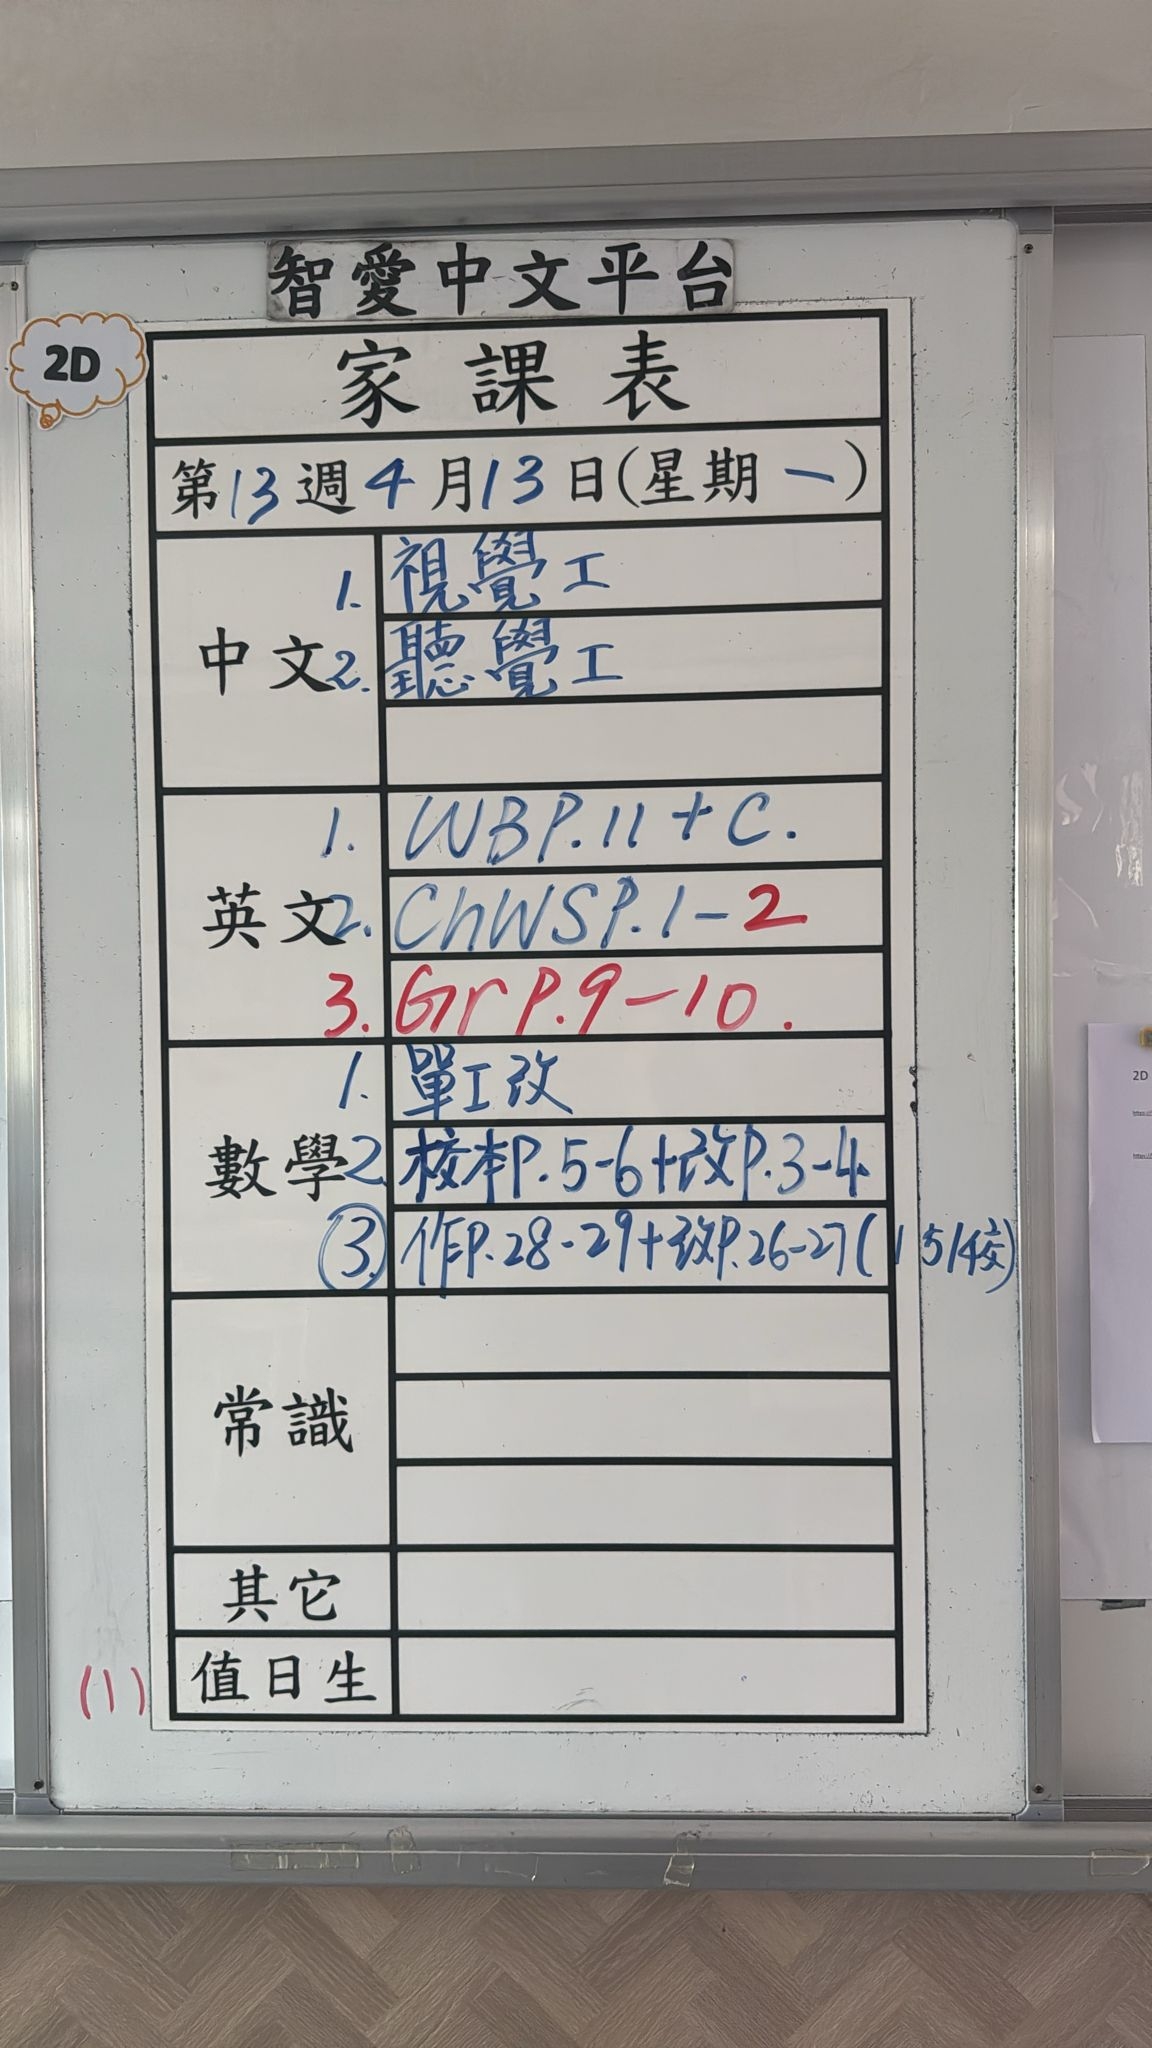 智愛中文平台
2D
家課表
第13週4月13日(星期一)
中文
1. 視覺工
2. 聽覺工
英文
1. WBP.11+C.
2. ChWSP.1-2
3. GrP.9-10.
數學
1. 單工改
2. 校本P.5-6+改P.3-4
③. 作P.28-29+改P.26-27(15/4交)
常識
其它
值日生
(1)
2D